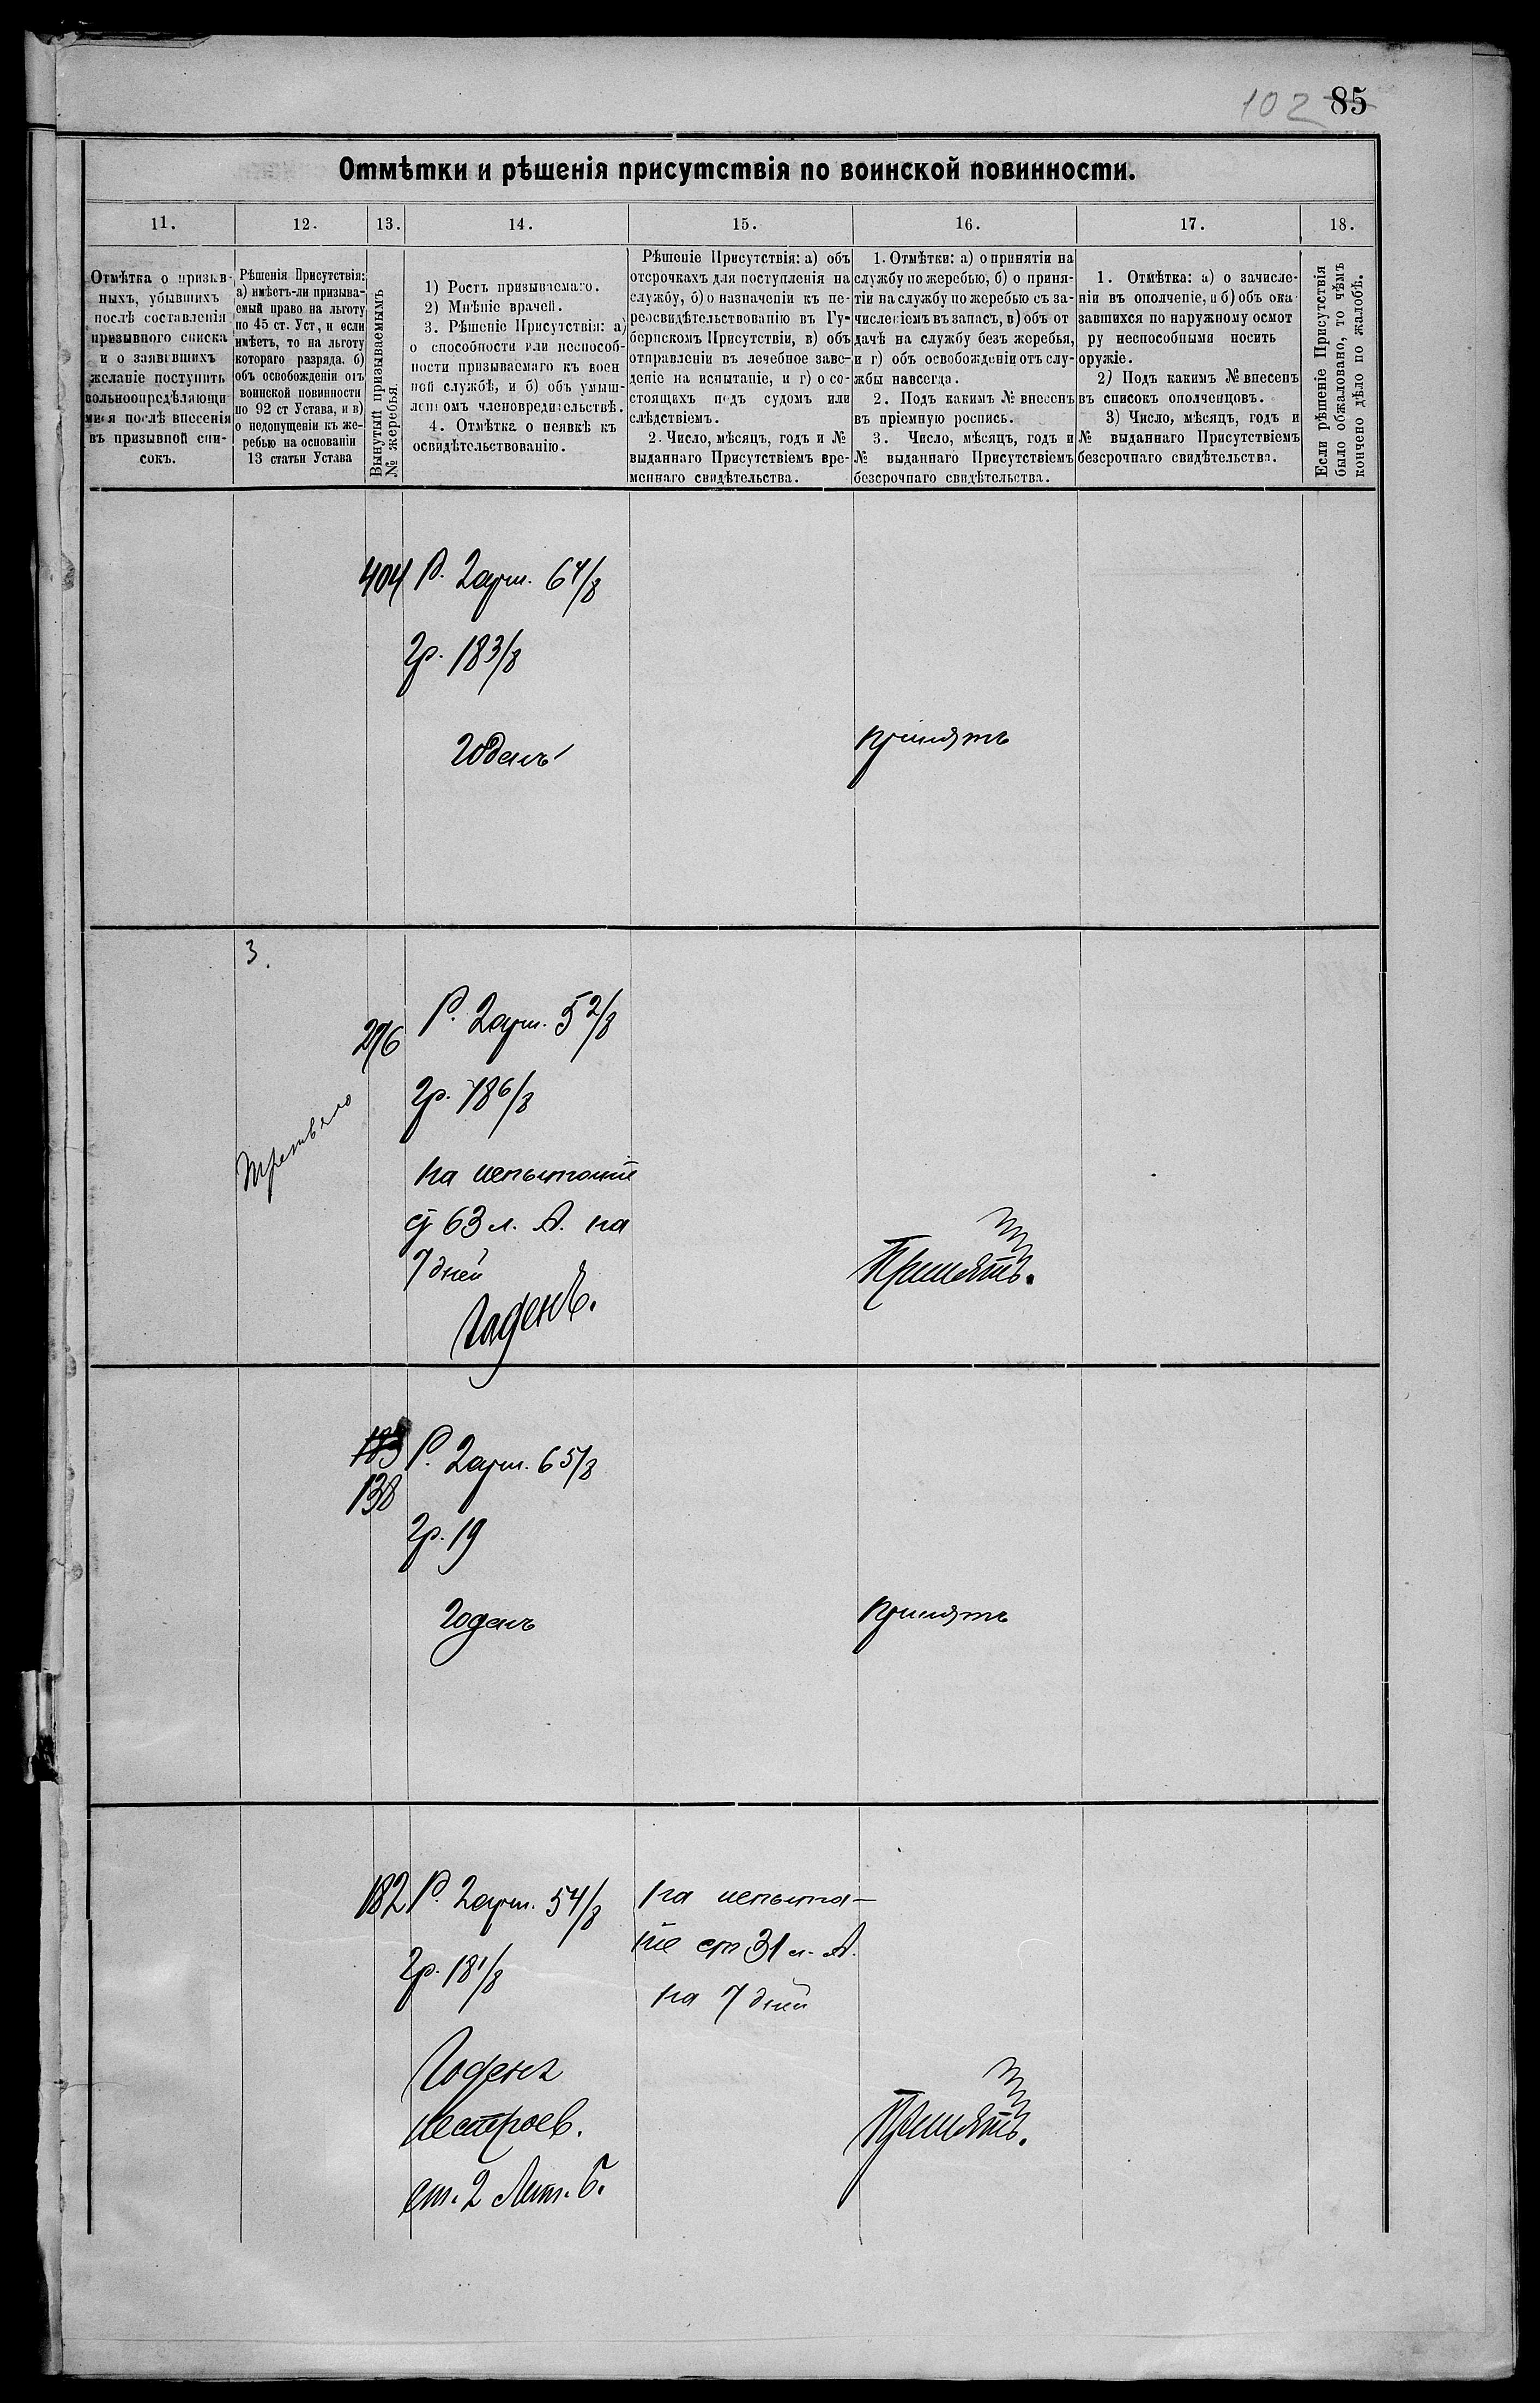 102 85
Отмѣтки и рѣшенія присутствія по воинской повинности.
11. 12. 13. 14. 15. 16. 17. 18.
Отмѣтка о призыв-
ныхъ, убывшихъ
послѣ составленія
призывного списка
и о заявившихъ
желаніе поступить
вольноопредѣляющи
мися послѣ внесенія
въ призывной спи-
сокъ.
Рѣшенія Присутствія:
а) имѣетъ-ли призыва-
емый право на льготу
по 45 ст. Уст, и если
имѣетъ, то на льготу
котораго разряда. б)
объ освобожденіи отъ
воинской повинности
по 92 ст Устава, и в)
о недопущеніи къ же-
ребью на основаніи
13 статьи Устава
Вынутый призываемымъ
№ жеребья.
1) Ростъ призываемаго.
2) Мнѣніе врачей.
3. Рѣшеніе Присутствія: а)
о способности или неспособ-
ности призываемаго къ воен
ной службѣ, и б) объ умыш-
леномъ членовредительствѣ.
4. Отмѣтка о неявкѣ къ
освидѣтельствованію.
Рѣшеніе Присутствія: а) объ
отсрочкахъ для поступленія на
службу, б) о назначеніи къ пе-
реосвидѣтельствованію въ Гу-
бернскомъ Присутствіи, в) объ
отправленіи въ лечебное заве-
деніе на испытаніе, и г) о со-
стоящахъ подъ судомъ или
слѣдствіемъ.
2. Число, мѣсяцъ, годъ и №
выданнаго Присутствіемъ вре-
меннаго свидѣтельства.
1. Отмѣтки: а) о принятіи на
службу по жеребью, б) о приня-
тіи на службу по жеребью съ за-
численіемъ въ запасъ, в) объ от
дачѣ на службу безъ жеребья,
и г) объ освобожденіи отъ слу-
жбы навсегда.
2. Подъ какимъ № внесенъ
въ пріемную роспись.
3. Число, мѣсяцъ, годъ и
№ выданнаго Присутствіемъ
безсрочнаго свидѣтельства.
1. Отмѣтка: а) о зачисле-
ніи въ ополченіе, и б) объ ока
завшихся по наружному осмот
ру неспособными носить
оружіе.
2) Подъ какимъ № внесенъ
въ списокъ ополченцовъ.
3) Число, мѣсяцъ, годъ и
№ выданнаго Присутствіемъ
безсрочнаго свидѣтельства.
Если рѣшеніе Присутствія
было обжаловано, то чѣмъ
кончено дѣло по жалобѣ.
404 Р. 2 арш. 6 4/8
Гр. 18 3/8
годенъ
принятъ
3.
276
Третьяго
Р. 2 арш. 5 2/8
Гр. 18 6/8
на испытаніе
63 л. А. на
7 дней
Годенъ.
Принятъ.
183
138
Р. 2 арш. 6 5/8
Гр. 19
годенъ
принятъ
182 Р. 2 арш. 5 4/8
Гр. 18 1/8
Годенъ
нестроев.
ст. 2 Лит. Б.
на испыта-
ніе ст 31 л. А.
на 7 дней
Принятъ.